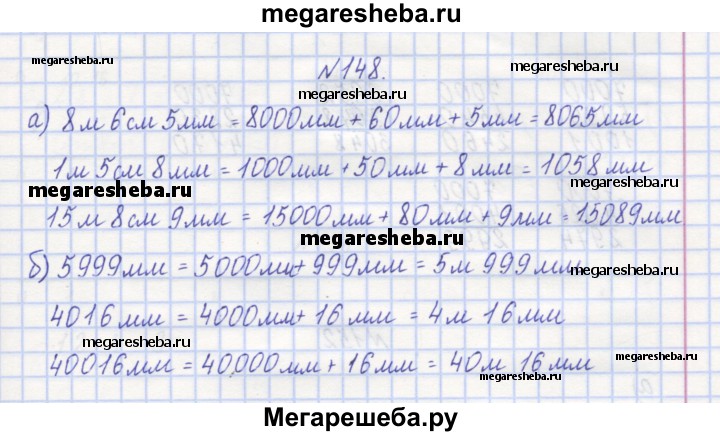 megaresheba.ru
megaresheba.ru
№148.
megaresheba.ru
а) 8м 6см 5мм = 8000мм + 60мм + 5мм = 8065мм
1м 5см 8мм = 1000мм + 50мм + 8мм = 1058мм
megaresheba.ru
megaresheba.ru
15м 8см 9мм = 15000мм + 80мм + 9мм = 15089мм
megaresheba.ru
б) 5999мм = 5000мм + 999мм = 5м 999мм
megaresheba.ru
megaresheba.ru
4016мм = 4000мм + 16мм = 4м 16мм
megaresheba.ru
40016мм = 40000мм + 16мм = 40м 16мм
megaresheba.ru
megaresheba.ru
Мегарешеба.ру